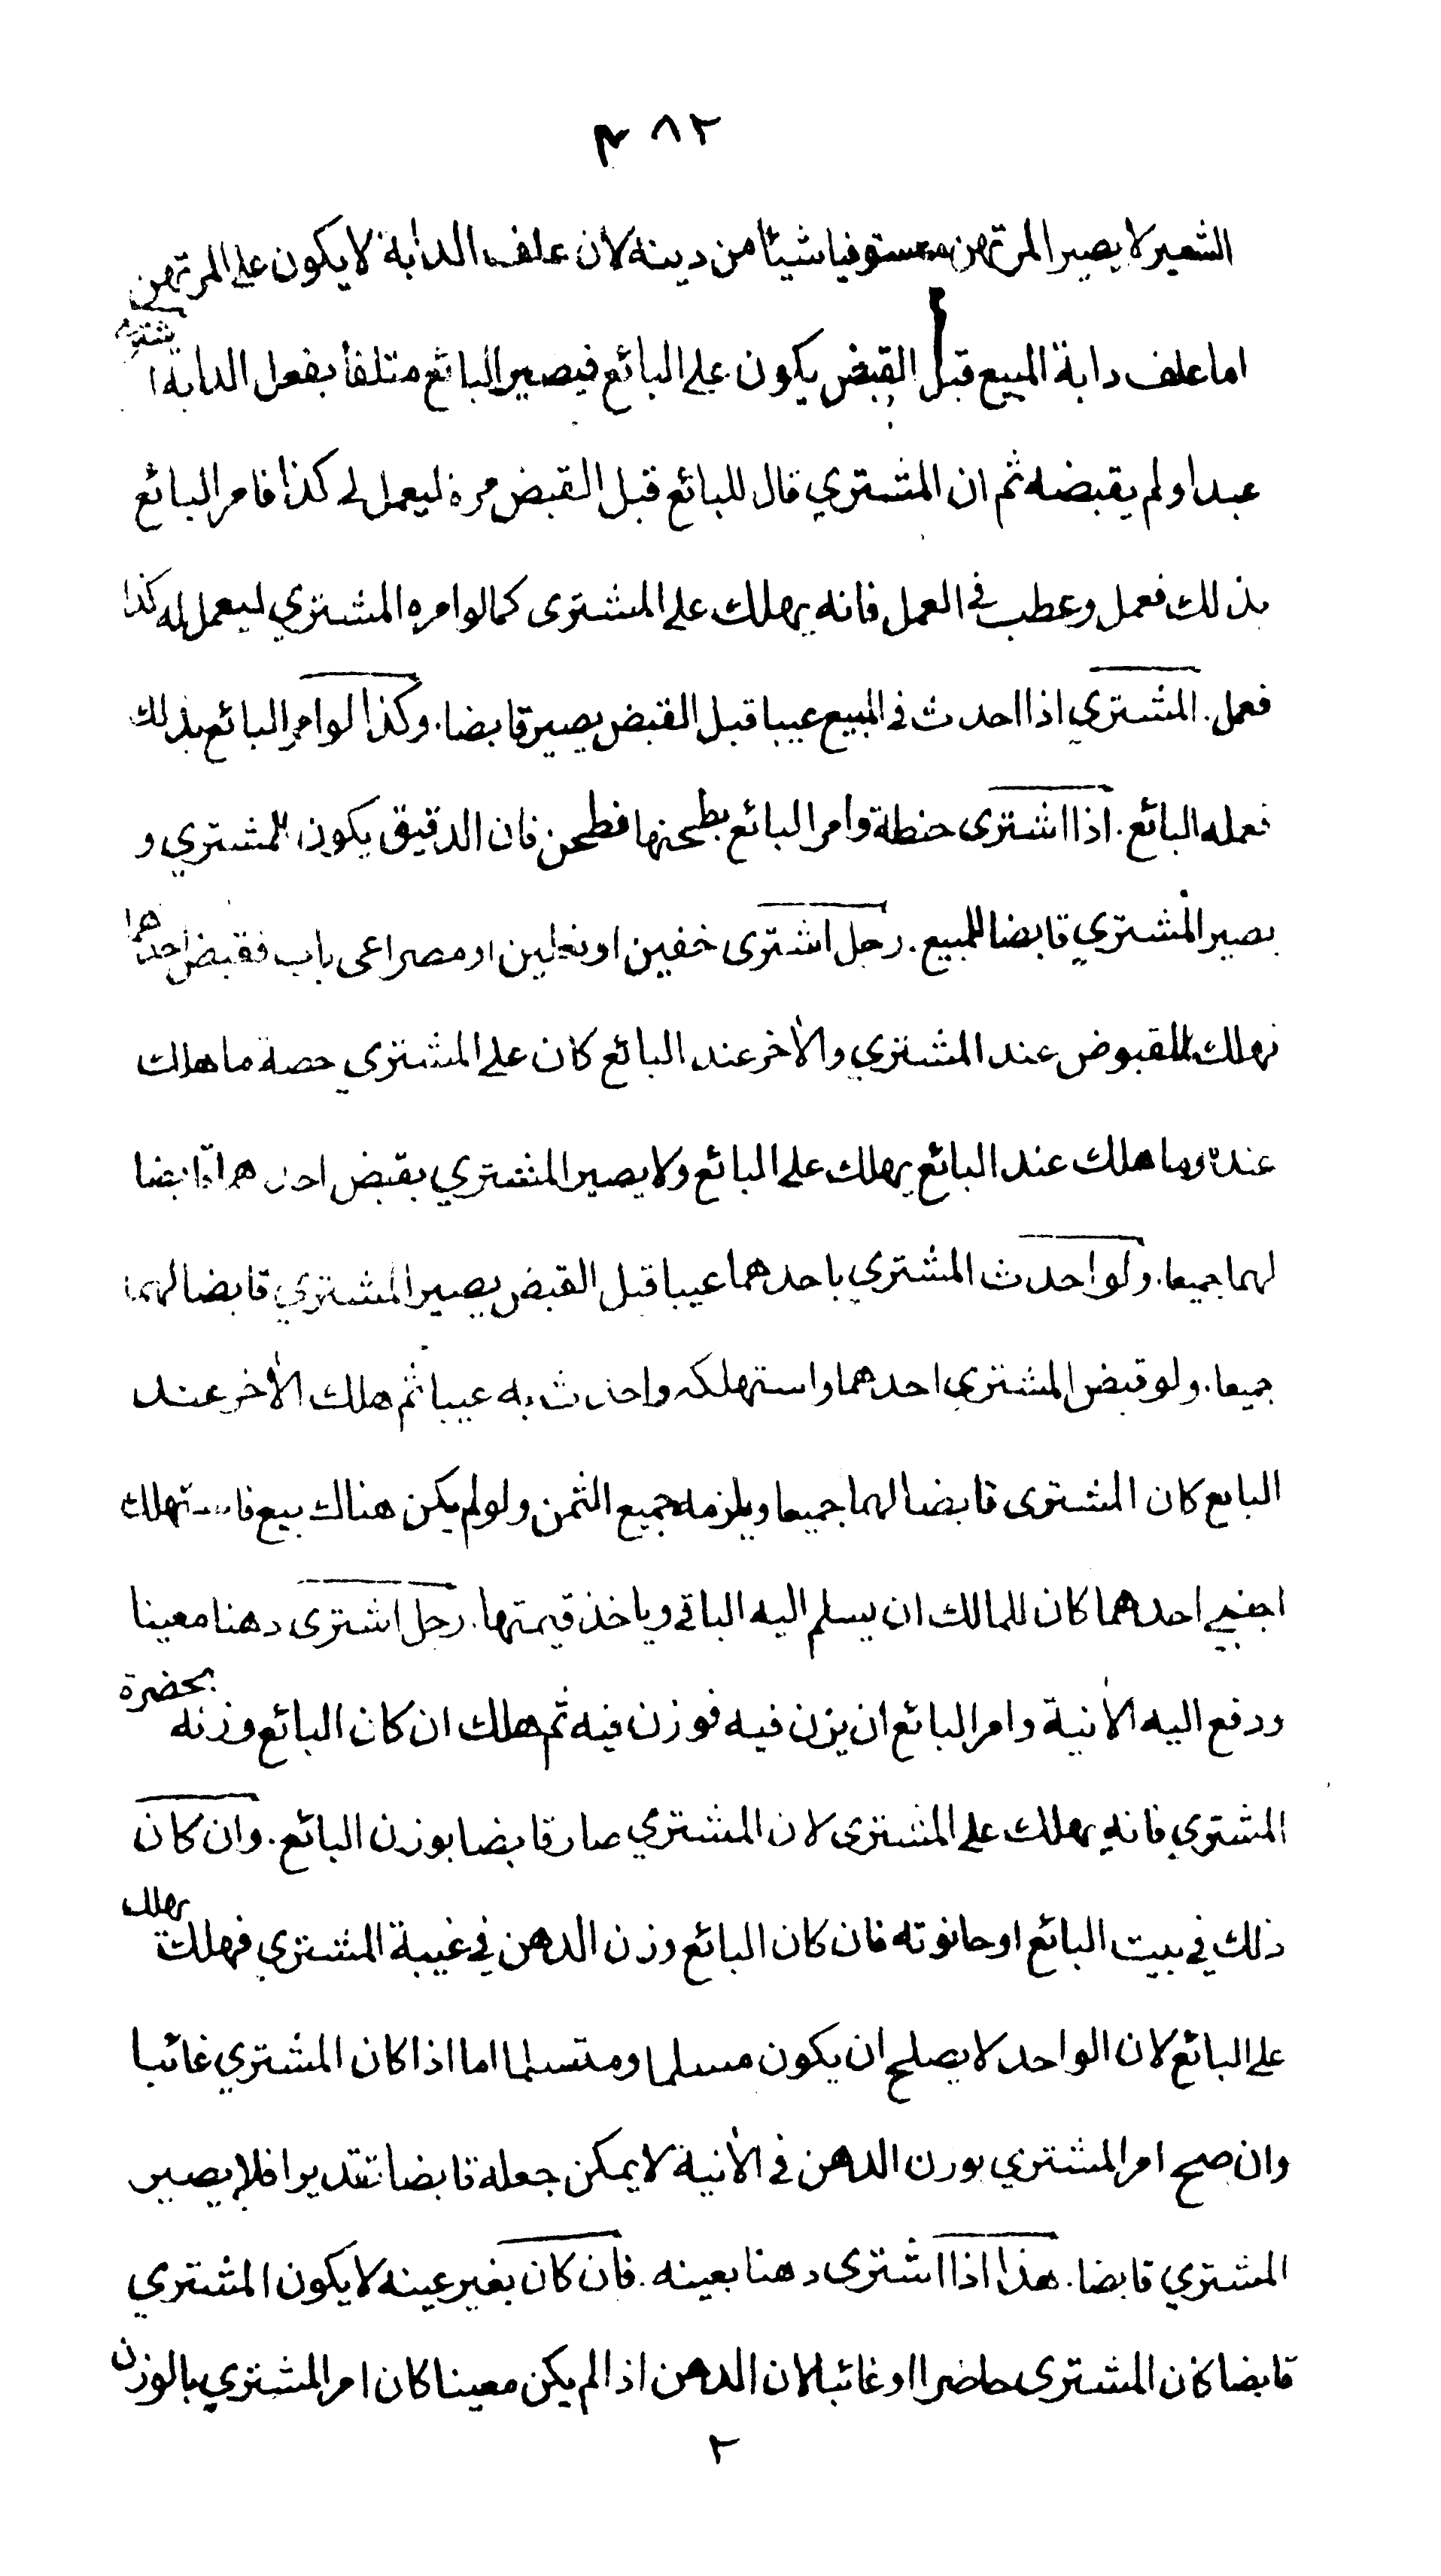 م ٨٢
الشعير لا يصير المرتهن مستوفيا شيئا من دينه لان علف الدابة لا يكون على المرتهن
اما علف دابة المبيع قبل القبض يكون على البائع فيصير البائع متلفا بفعل الدابة اشترى
عبدا ولم يقبضه ثم ان المشتري قال للبائع قبل القبض مره ليعمل لي كذا فامر البائع
بذلك فعمل وعطب في العمل فانه يهلك على المشترى كما لو امره المشتري ليعمل له كذا
فعمل. المشتري اذا احدث في المبيع عيبا قبل القبض يصير قابضا. وكذا لو امر البائع بذلك
فعله البائع. اذا اشترى حنطة وامر البائع بطحنها فطحن فان الدقيق يكون للمشتري و
يصير المشتري قابضا للمبيع. رجل اشترى خفين او نعلين او مصراعى باب فقبض احدهما
فهلك المقبوض عند المشتري والآخر عند البائع كان على المشتري حصة ما هلك
عنده وما هلك عند البائع يهلك على البائع ولا يصير المشتري بقبض احدهما قابضا
لهما جميعا. ولو احدث المشتري باحدهما عيبا قبل القبض يصير المشتري قابضا لهما
جميعا. ولو قبض المشتري احدهما واستهلكه واحدث به عيبا ثم هلك الآخر عند
البايع كان المشترى قابضا لهما جميعا ويلزمه جميع الثمن ولو لم يكن هناك بيع فاستهلك
اجنبي احدهما كان للمالك ان يسلم اليه الباقي وياخذ قيمتها. رجل اشترى دهنا معينا
ودفع اليه الآنية وامر البائع ان يزن فيه فوزن فيه ثم هلك ان كان البائع وزنه بحضرة
المشتري فانه يهلك على المشترى لان المشتري صار قابضا بوزن البائع. وان كان
ذلك في بيت البائع او حانوته فان كان البائع وزن الدهن في غيبة المشتري فهلك يهلك
على البائع لان الواحد لا يصلح ان يكون مسلما ومتسلما اما اذا كان المشتري غائبا
وان صح امر المشتري بوزن الدهن في الآنية لا يمكن جعله قابضا تقديرا فلا يصير
المشتري قابضا. هذا اذا اشترى دهنا بعينه. فان كان بغير عينه لا يكون المشتري
قابضا كان المشترى حاضرا او غائبا لان الدهن اذا لم يكن معينا كان امر المشتري بالوزن
٢